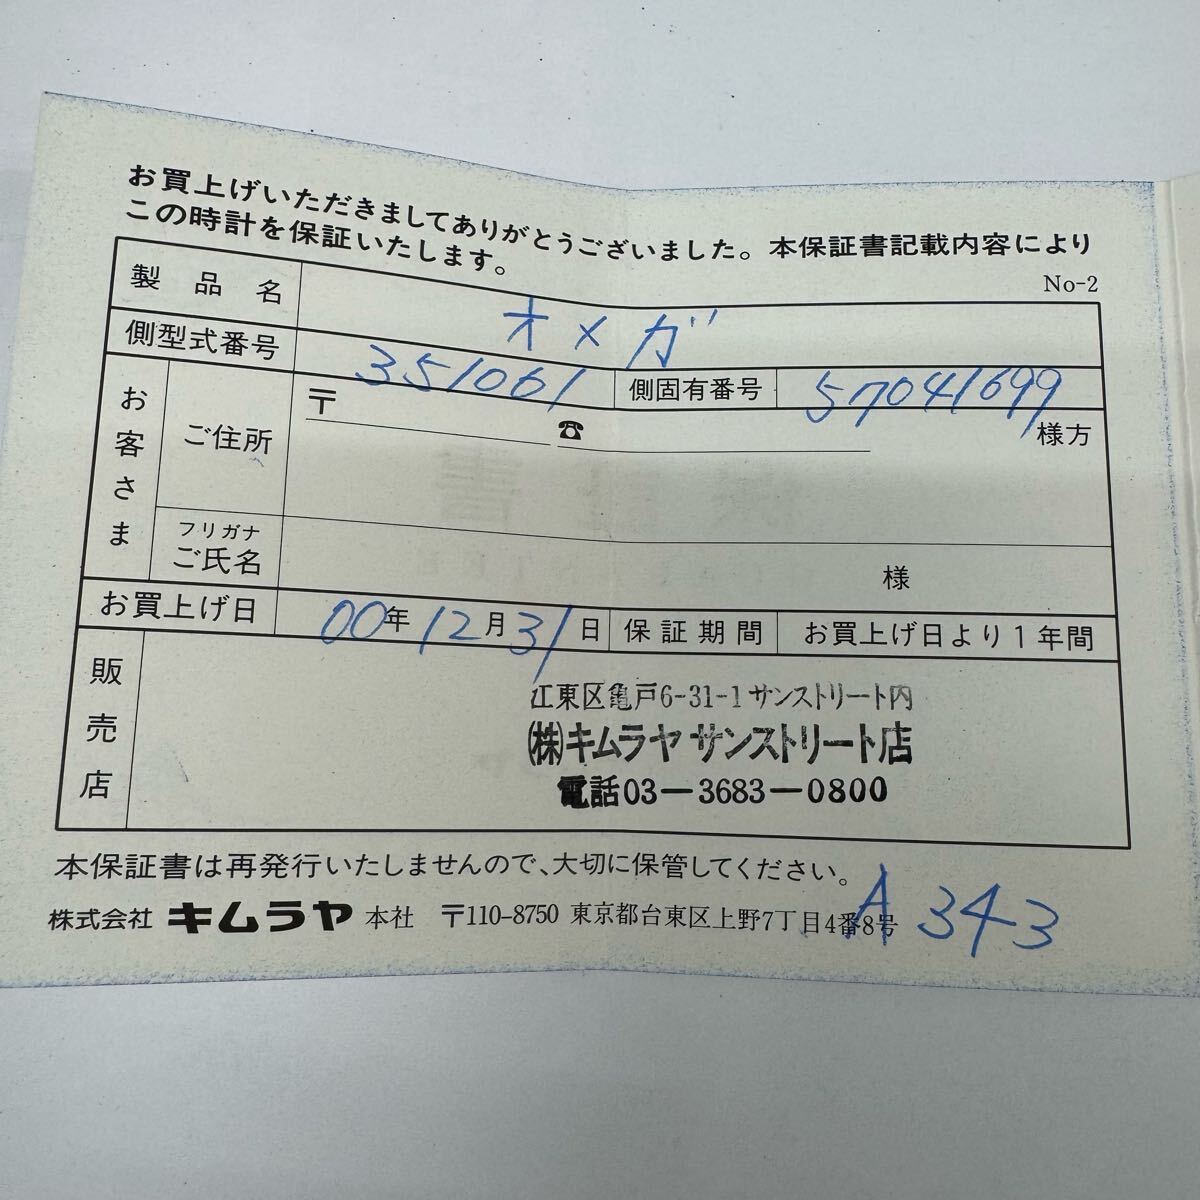 お買上げいただきましてありがとうございました。本保証書記載内容により
この時計を保証いたします。
No-2
製品名 オメガ
側型式番号 351061 側固有番号 57041699
お客さま
ご住所 〒 ☎ 様方
フリガナ
ご氏名 様
お買上げ日 00年12月31日 保証期間 お買上げ日より1年間
販売店
江東区亀戸6-31-1サンストリート内
(株)キムラヤサンストリート店
電話03-3683-0800
本保証書は再発行いたしませんので、大切に保管してください。
株式会社 キムラヤ 本社 〒110-8750 東京都台東区上野7丁目4番8号
A 343